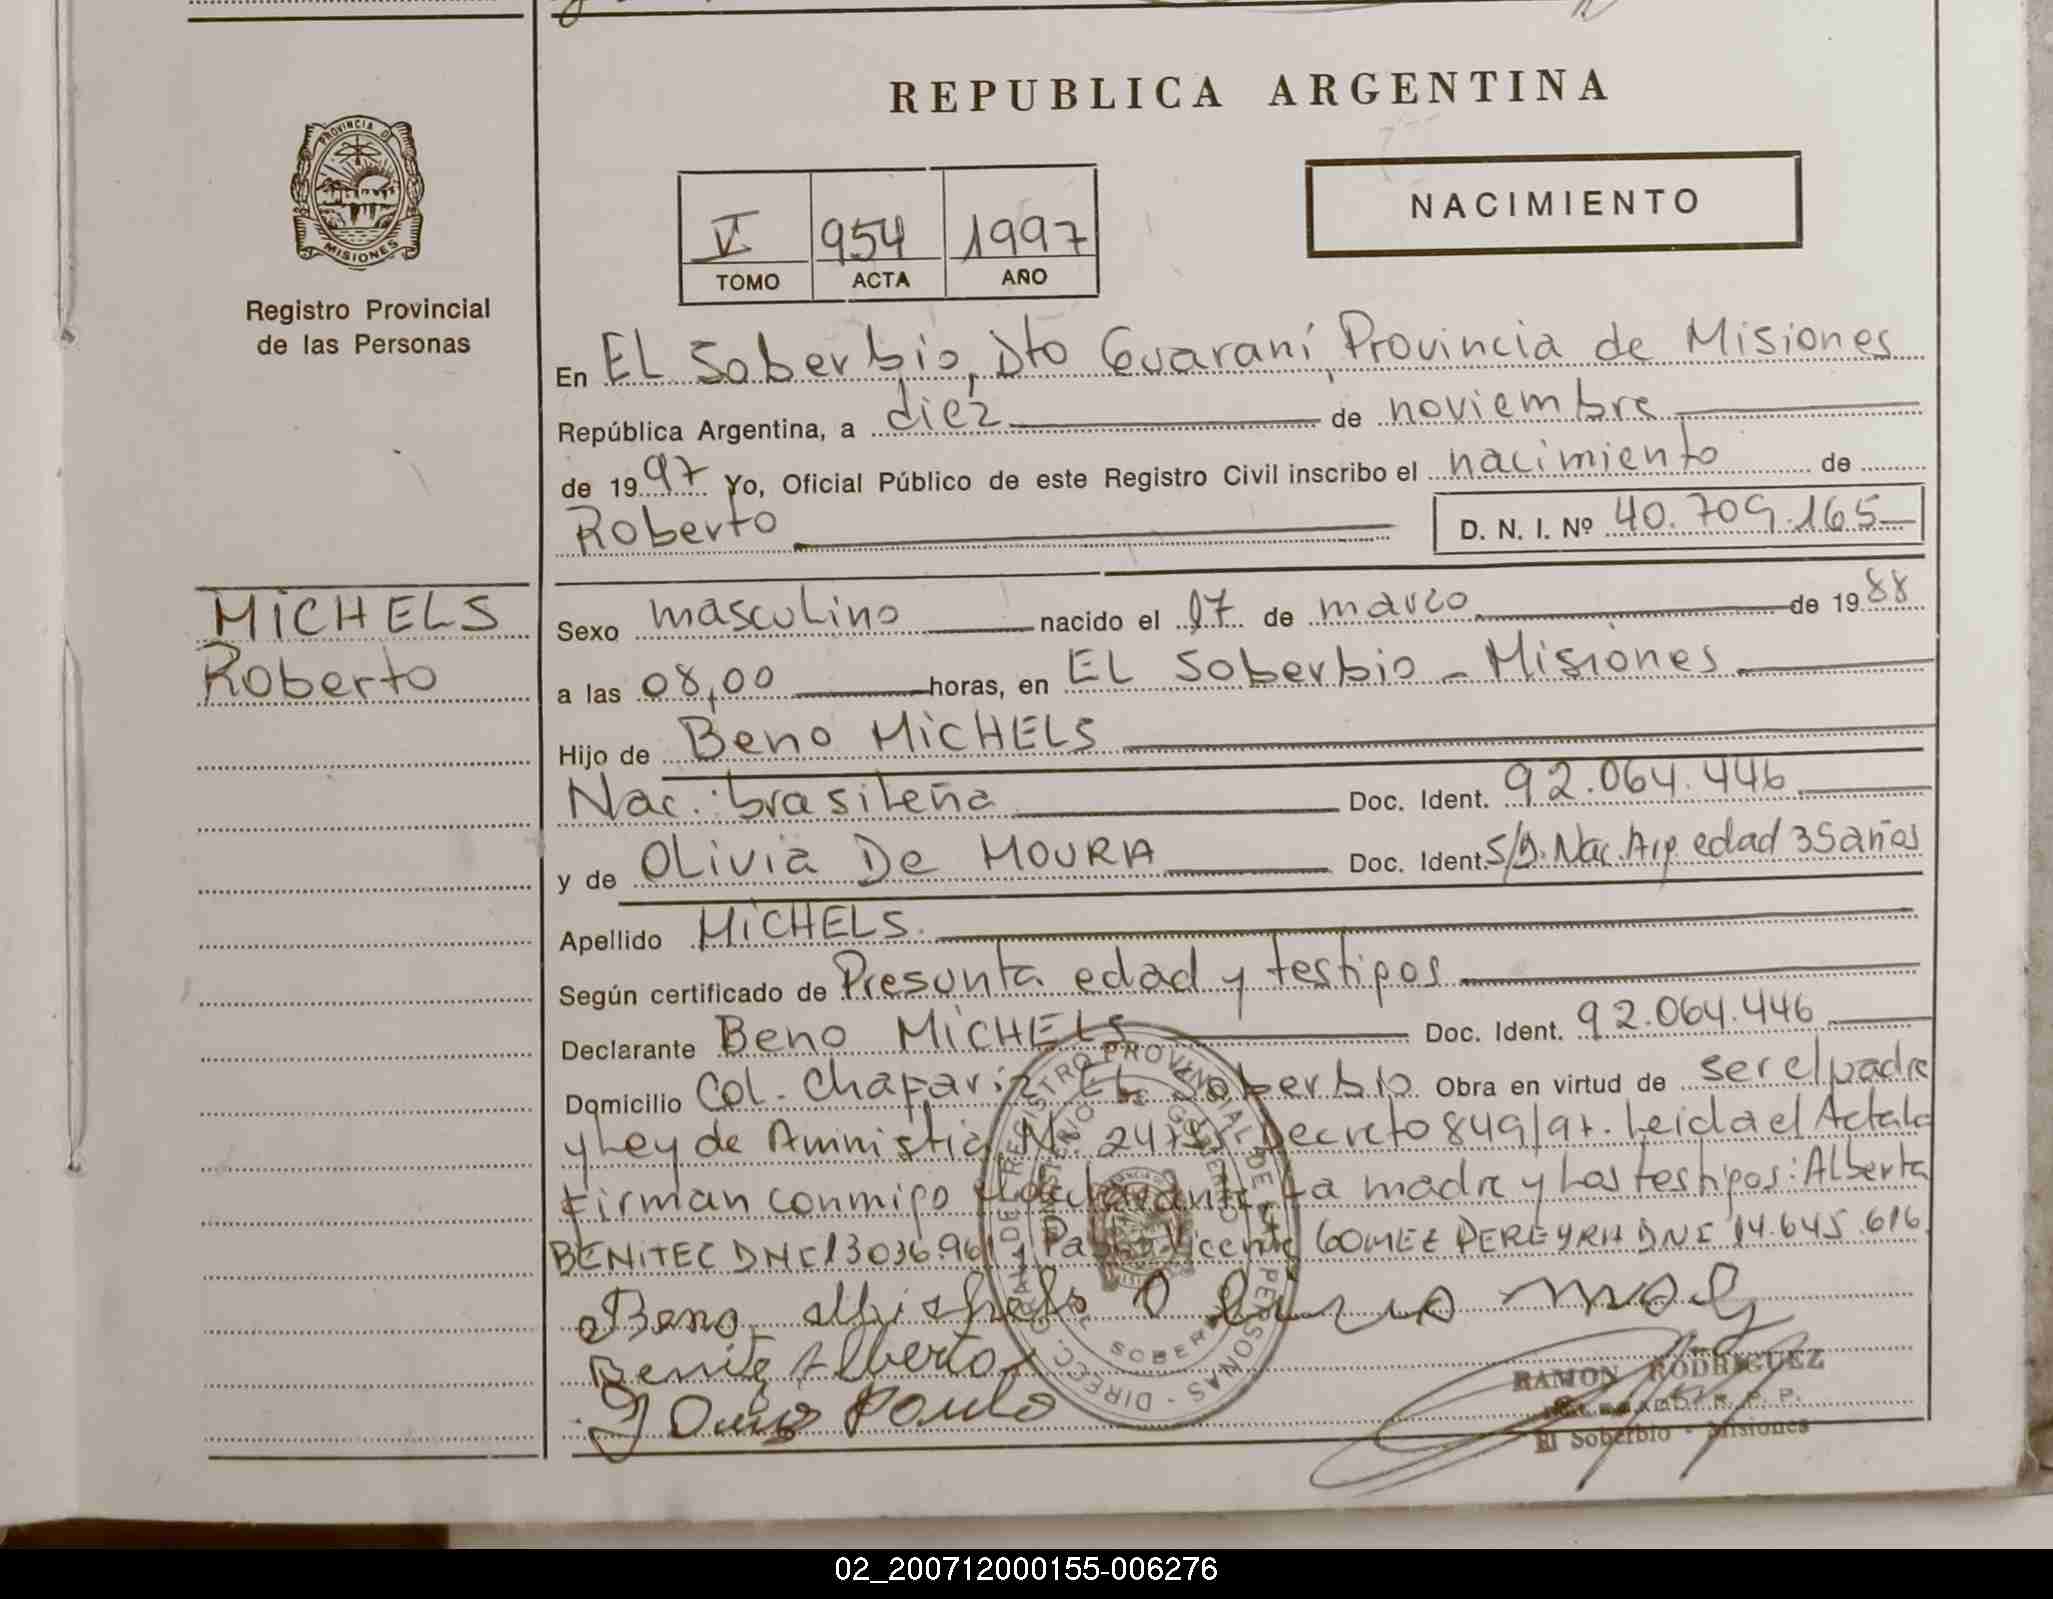 REPUBLICA ARGENTINA
PROVINCIA DE
MISIONES
Registro Provincial
de las Personas
V 954 1997
TOMO ACTA AÑO
NACIMIENTO
En EL Soberbio, Dto Guaraní, Provincia de Misiones
República Argentina, a diez de noviembre
de 1997 Yo, Oficial Público de este Registro Civil inscribo el nacimiento de
Roberto D. N. I. Nº 40.709.165
MiCHELS
Roberto
Sexo masculino nacido el 17 de marzo de 1988
a las 08,00 horas, en EL Soberbio - Misiones
Hijo de Beno MiCHELS
Nac.: brasileña Doc. Ident. 92.064.446
y de OLivia De MOURA Doc. Ident. S/D. Nac. Arg edad 35 años
Apellido MiCHELS
Según certificado de Presunta edad y testigos
Declarante Beno MiCHELS Doc. Ident. 92.064.446
Domicilio Col. Chafariz EL Soberbio Obra en virtud de ser el padre
y Ley de Amnistia Nº Decreto 849/97. Leida el Acta la
firman conmigo el declarante La madre y Los testigos: Alberto
BENITEC DNI 13036.961 y Pablo Vicente GOMEZ PEREYRA DNI 14.645.616
Beno Michels
Benite Alberto
RAMON RODRIGUEZ
El Soberbio - Misiones
REGISTRO PROVINCIAL DE LAS PERSONAS - DIRECC. GRAL. DE
02_200712000155-006276